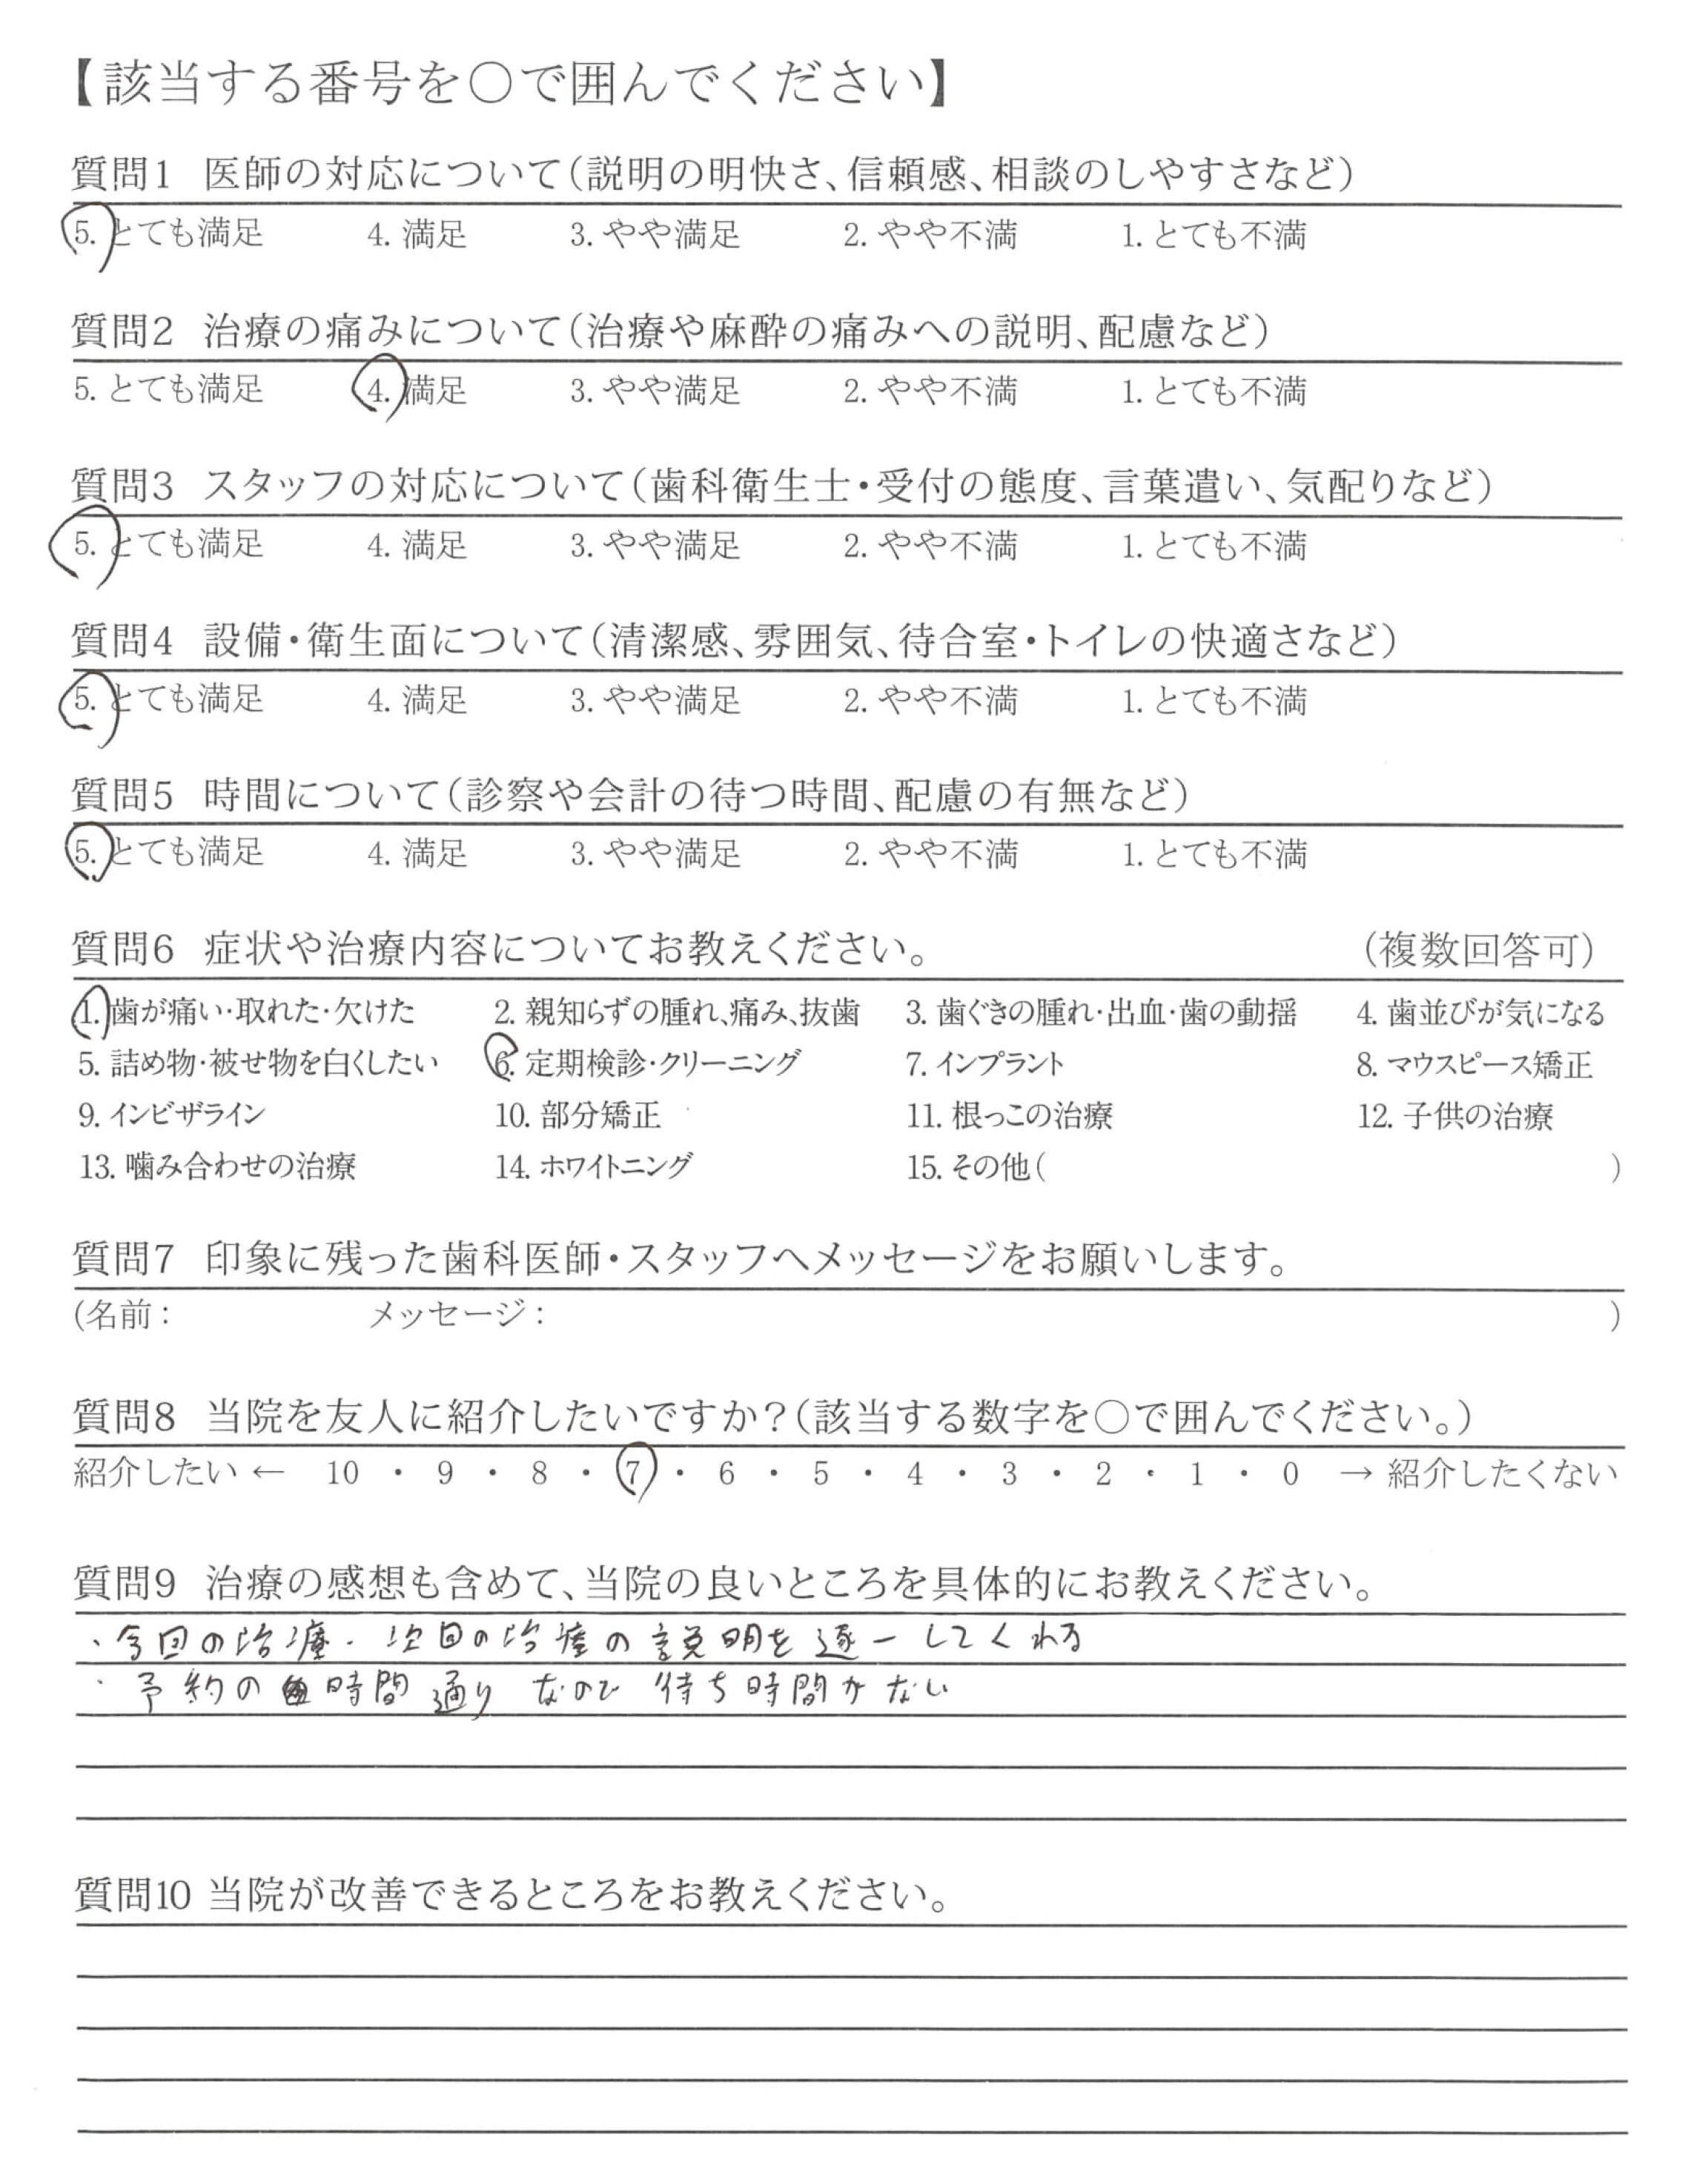 【該当する番号を○で囲んでください】
質問1 医師の対応について(説明の明快さ、信頼感、相談のしやすさなど)
5. とても満足 4. 満足 3. やや満足 2. やや不満 1. とても不満
質問2 治療の痛みについて(治療や麻酔の痛みへの説明、配慮など)
5. とても満足 4. 満足 3. やや満足 2. やや不満 1. とても不満
質問3 スタッフの対応について(歯科衛生士・受付の態度、言葉遣い、気配りなど)
5. とても満足 4. 満足 3. やや満足 2. やや不満 1. とても不満
質問4 設備・衛生面について(清潔感、雰囲気、待合室・トイレの快適さなど)
5. とても満足 4. 満足 3. やや満足 2. やや不満 1. とても不満
質問5 時間について(診察や会計の待つ時間、配慮の有無など)
5. とても満足 4. 満足 3. やや満足 2. やや不満 1. とても不満
質問6 症状や治療内容についてお教えください。 (複数回答可)
1. 歯が痛い・取れた・欠けた 2. 親知らずの腫れ、痛み、抜歯 3. 歯ぐきの腫れ・出血・歯の動揺 4. 歯並びが気になる
5. 詰め物・被せ物を白くしたい 6. 定期検診・クリーニング 7. インプラント 8. マウスピース矯正
9. インビザライン 10. 部分矯正 11. 根っこの治療 12. 子供の治療
13. 噛み合わせの治療 14. ホワイトニング 15. その他( )
質問7 印象に残った歯科医師・スタッフへメッセージをお願いします。
(名前: メッセージ: )
質問8 当院を友人に紹介したいですか?(該当する数字を○で囲んでください。)
紹介したい ← 10 ・ 9 ・ 8 ・ 7 ・ 6 ・ 5 ・ 4 ・ 3 ・ 2 ・ 1 ・ 0 → 紹介したくない
質問9 治療の感想も含めて、当院の良いところを具体的にお教えください。
・今回の治療・次回の治療の説明を逐一してくれる
・予約の時間通りなので待ち時間がない
質問10 当院が改善できるところをお教えください。